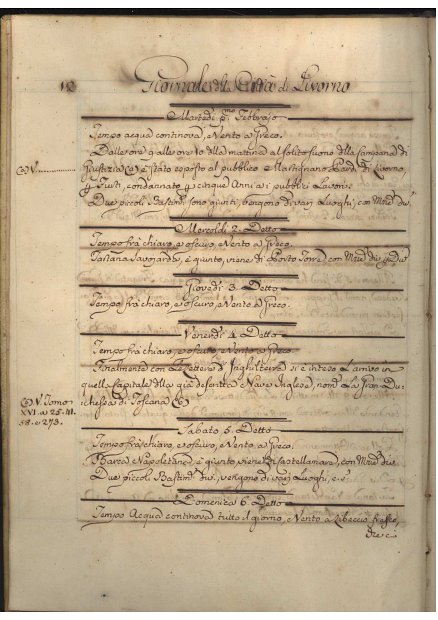 12 Giornale della Città di Livorno
Martedì p.mo Febbrajo
Tempo acqua continova, e Vento a Greco.
Dalle ore 9 alle ore 10 della mattina al solito suono della Campana di
(a) V.
Giustizia (a) è stato esposto al pubblico di Livorno,
p Furti, condannato p cinque Anni a i pubblici Lavori
Due piccoli Bastim.ti sono giunti, vengono di varj Luoghi, con Merd.
Mercoldì 2. Detto
Tempo frà chiaro, e oscuro, e Vento a Greco.
Tartana Savojarda, è giunta, viene di Porto Torre con Merd.
Giovedì 3. Detto
Tempo frà chiaro, e oscuro, e Vento a Greco.
Venerdì 4. Detto
Tempo frà chiaro, e oscuro, e Vento a Greco.
Finalmente con Lettere d'Inghilterra si è inteso L'arrivo in
quella Capitale della già descritta Nave Inglese, nom.ta La Gran Du-
(a) V. Tomo
chessa di Toscana (a)
XVI. a 25. 41.
58. e 273.
Sabato 5. Detto
Tempo frà chiaro, e oscuro, e Vento a Greco.
Barca Napoletana, è giunta, viene di Castellamara, con Merd.
Due piccoli Bastim.ti vengono di varj Luoghi,
Domenica 6. Detto
Tempo Acqua continova tutto il giorno, e Vento a Libeccio fresco,